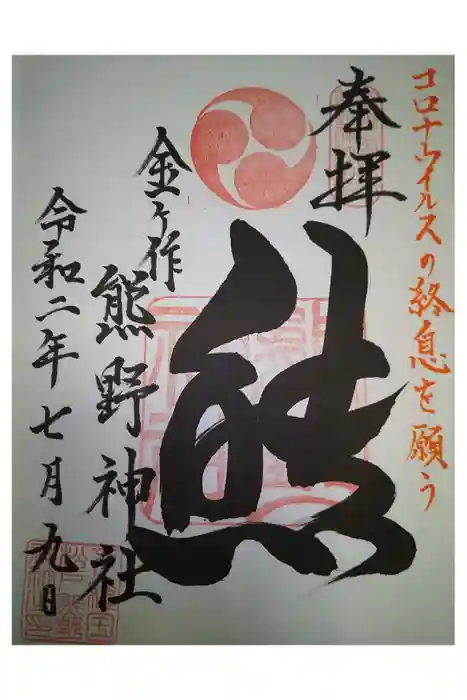 コロナウイルスの終息を願う
奉拝
熊
金ヶ作
熊野神社
令和二年七月九日